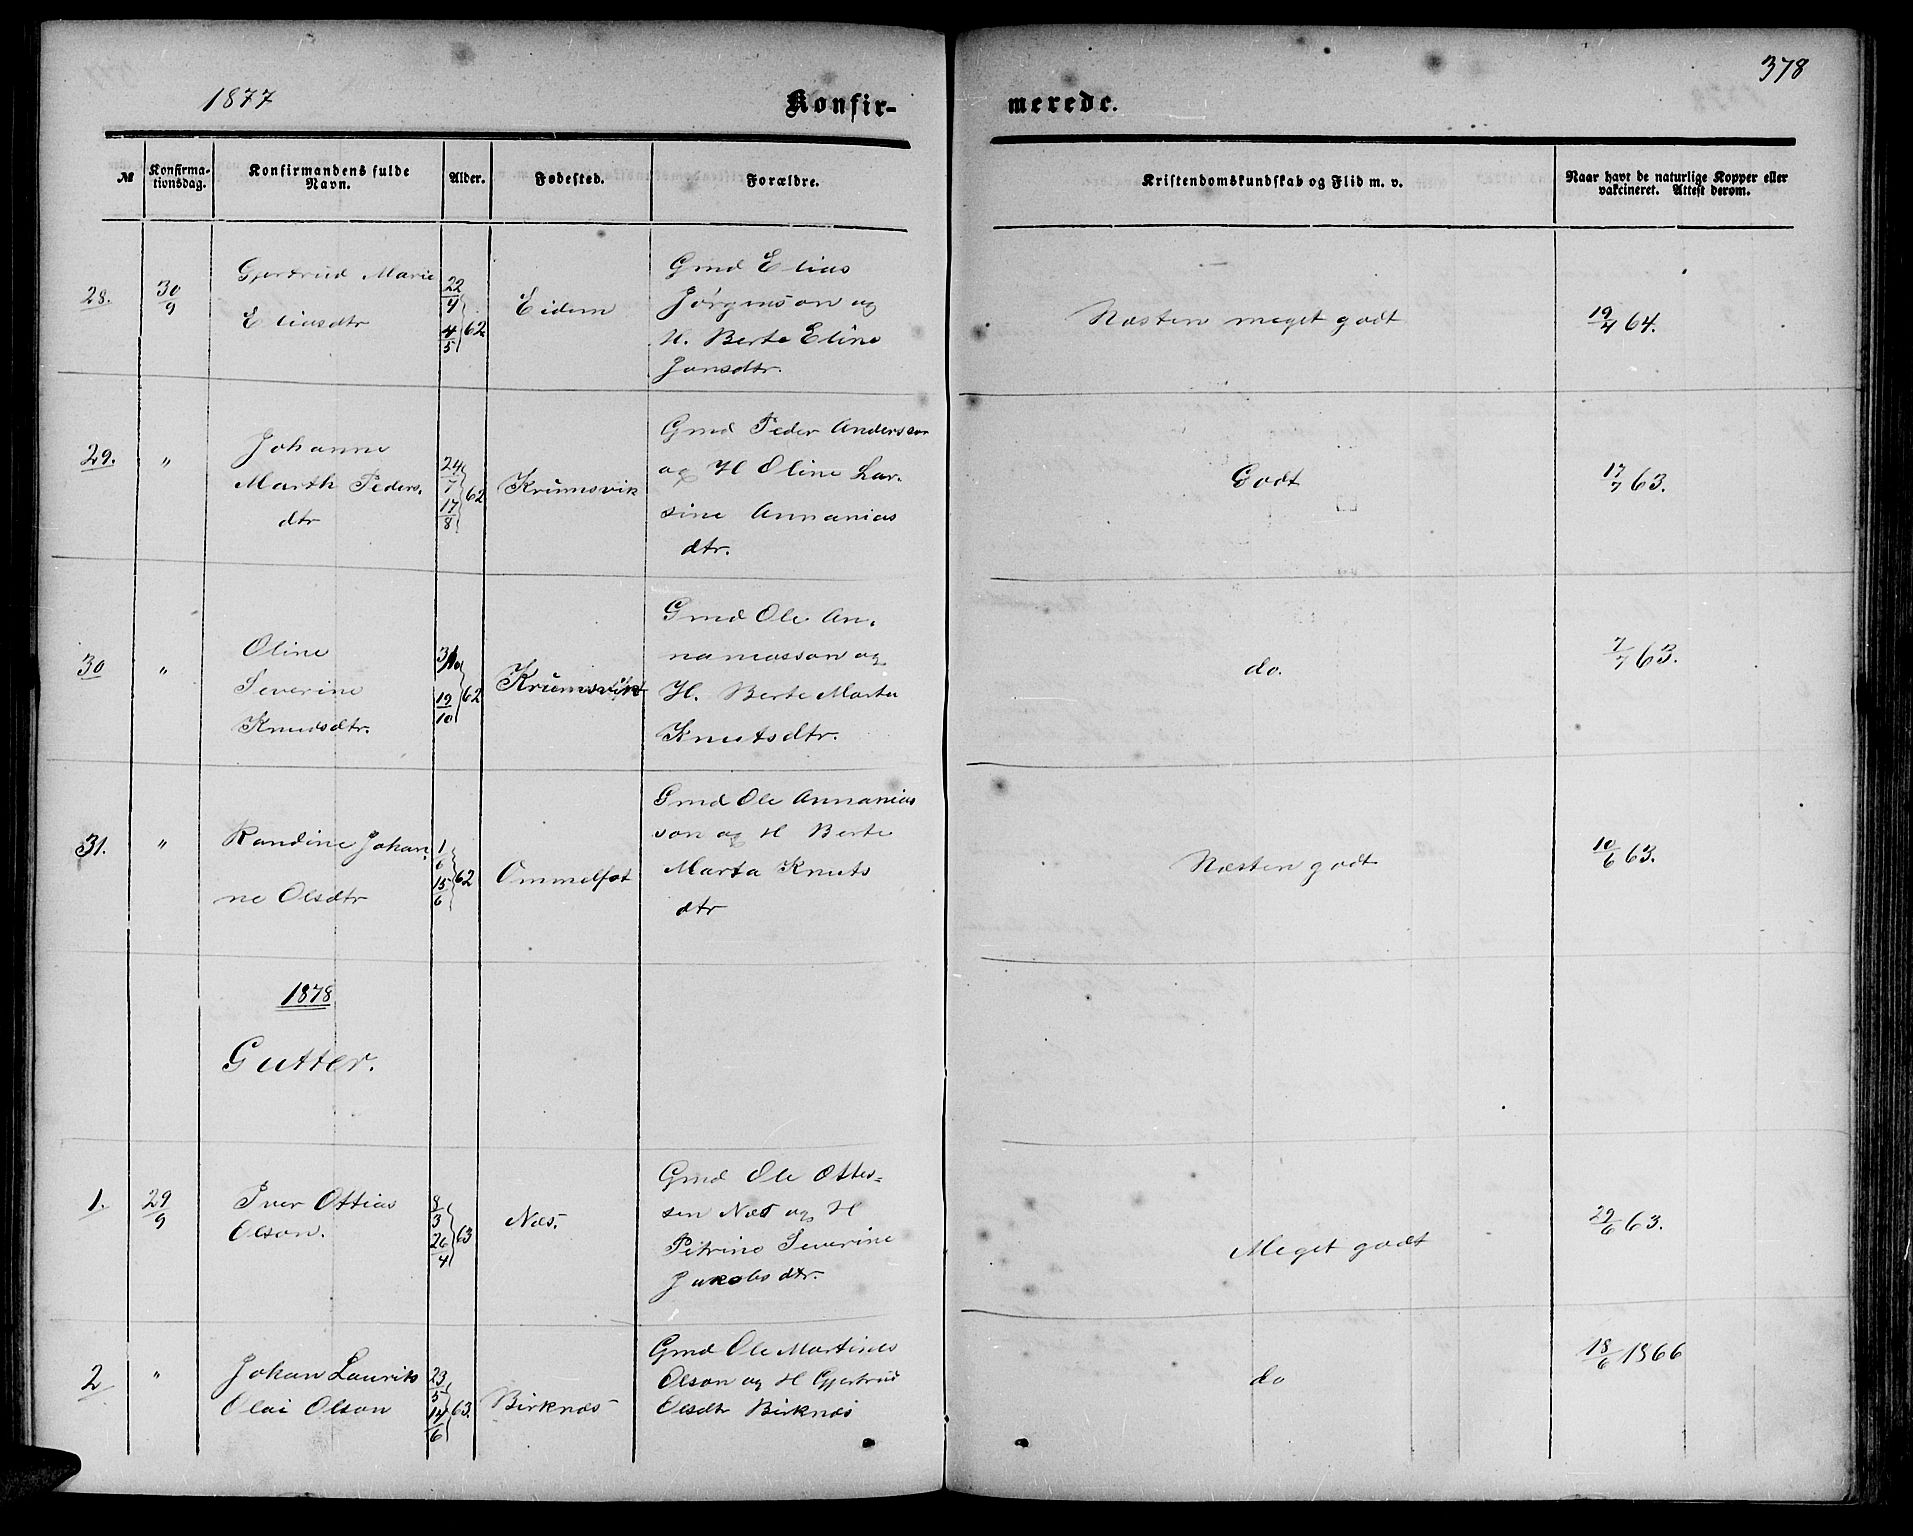 378
1877
Konfir-
merede.
№
Konfirma-
tionsdag.
Konfirmandens fulde
Navn.
Alder.
Fødested.
Forældre.
Kristendomskundskab og Flid m. v.
Naar havt de naturlige Kopper eller
vakcineret. Attest derom.
28.
30/9
Gjertrud Marie
Eliasdtr
22/4
4/5
62
Eidem
Gmd Elias
Jørgenson og
H. Berte Eline
Jonsdtr.
Næsten meget godt
19/4 64.
29.
"
Johanne
Marth Peders.
dtr
24/7
17/8
62
Krumsvik
Gmd Peder Anderson
og H Oline Lar-
sine Annanias
dtr.
Godt
17/7 63.
30
"
Oline
Severine
Knudsdtr.
19/10
62
Krumsvik
Gmd Ole An-
naniasson og
H. Berte Marta
Knutsdtr.
do.
7/7 63.
31.
"
Randine Johan-
ne Olsdtr
1/6
15/6
62
Ommelfot
Gmd Ole Annanias
son og H Berte
Marta Knuts
dtr
Næsten godt
10/6 63.
1878
Gutter.
1.
29/9
Iver Ottias
Olson.
8/3
26/4
63
Næs.
Gmd Ole Ottes-
sen Næs og H
Petrine Severine
Jakobsdtr.
Meget godt
29/6 63.
2
"
Johan Laurits
Olai Olson
23/5
14/6
63.
Birknæs
Gmd Ole Martinus
Olson og H Gjertrud
Olsdtr Birknæs
do
18/6 1866